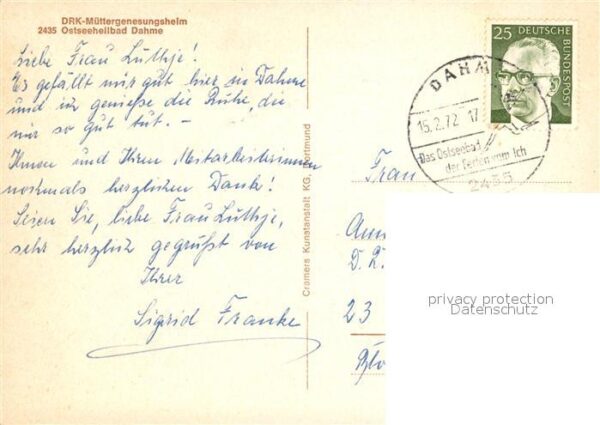 DRK-Müttergenesungsheim
2435 Ostseeheilbad Dahme
Liebe Frau Lüthje!
Es gefällt mir gut hier in Dahme
und ich genieße die Ruhe, die
mir so gut tut. -
Ihnen und Ihren Mitarbeiterinnen
nochmals herzlichen Dank!
Seien Sie, liebe Frau Lüthje,
sehr herzlich gegrüßt von
Ihrer
Sigrid Franke
Cramers Kunstanstalt KG, Dortmund
25 DEUTSCHE
BUNDESPOST
DAHME
15.2.72 17
Das Ostseebad
der Ferien vom Ich
2435
Frau
D.
23
privacy protection
Datenschutz